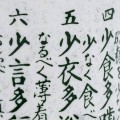 四 少食多
少なく食べ
五 少衣多
なるべく薄着
六 少言多